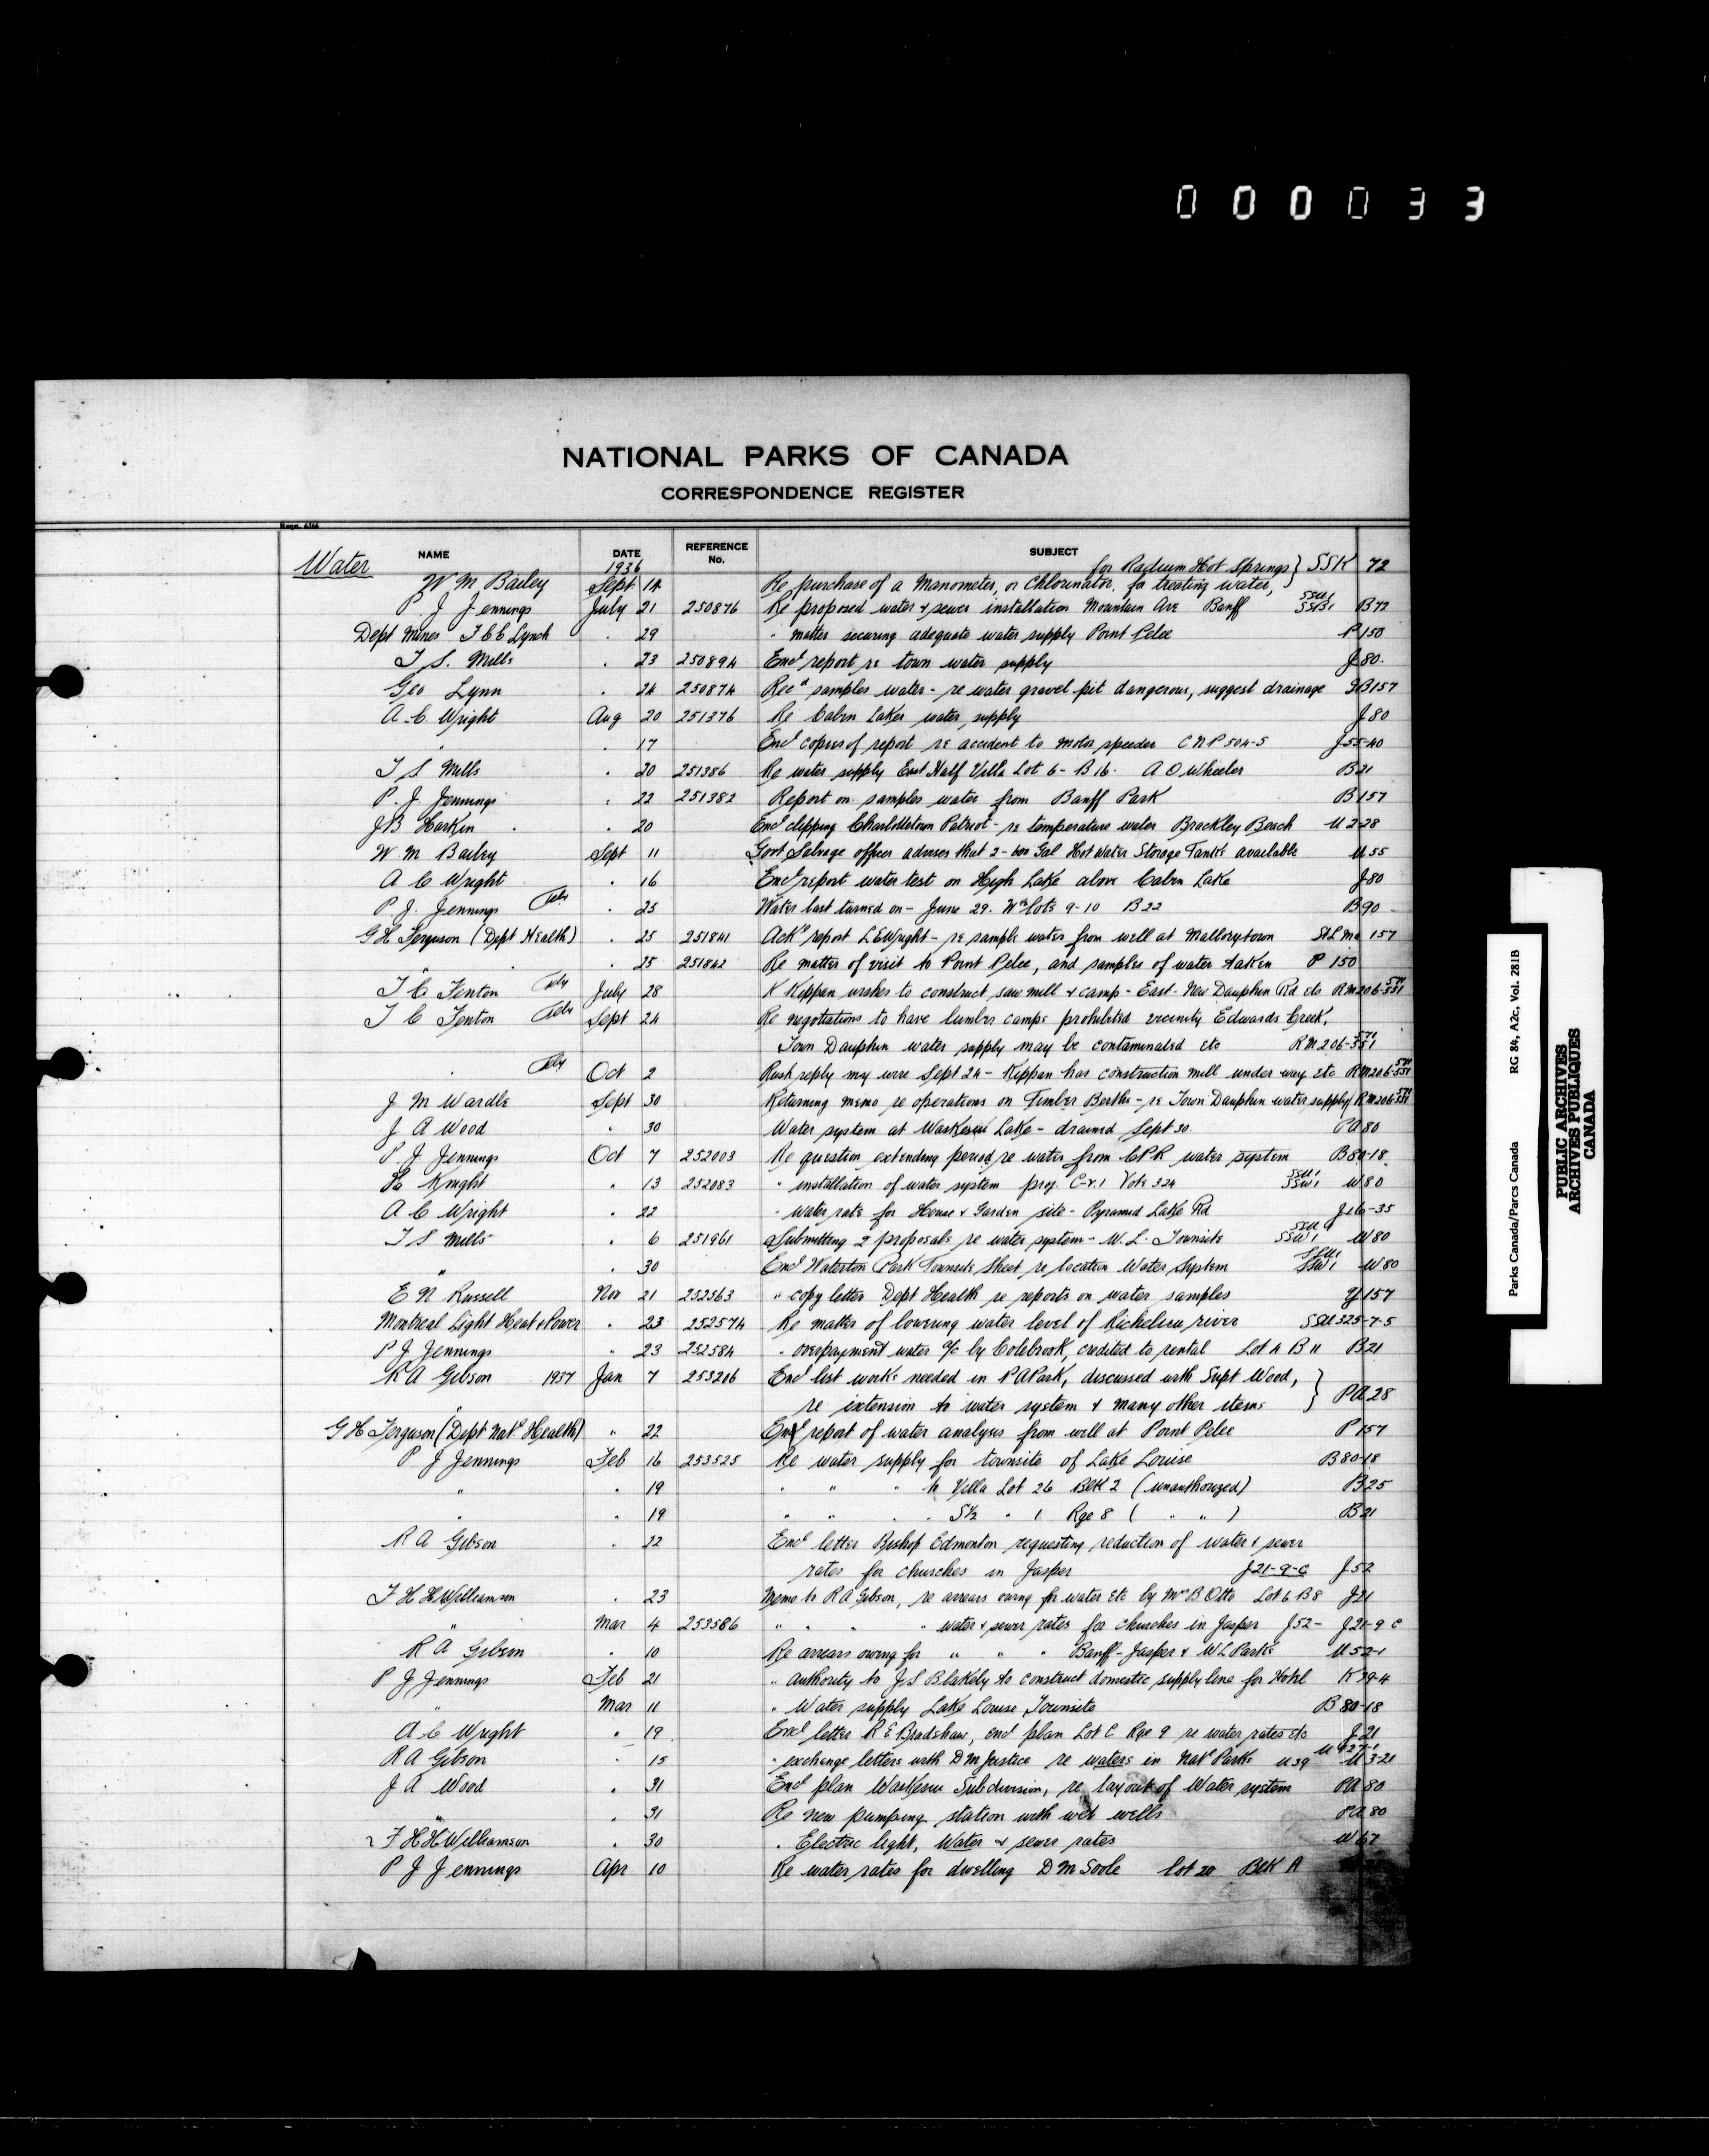 000033
NATIONAL PARKS OF CANADA
CORRESPONDENCE REGISTER
Water NAME DATE REFERENCE No. SUBJECT
1936 for Radium Hot Springs } SSK 72
W M Bailey Sept 14 Re purchase of a Manometer, or Chlorinator, for treating water,
P. J Jennings July 21 250876 Re proposed water & sewer installation Mountain Ave Banff SSB1 B72
Dept Mines F C C Lynch " 29 " matter securing adequate water supply Point Pelee P150
T S. Mills " 23 250894 Encl report re town water supply J80.
Geo Lynn " 24 250874 Recd samples water - re water gravel pit dangerous, suggest drainage GB157
A C Wright Aug 20 251376 Re Cabin Lakes water supply J80
" " 17 Encl copies of report re accident to motor speeder CNP 504-5 J55-40
T S Mills " 20 251386 Re water supply East Half Villa Lot 6 - B16. A O Wheeler B21
P. J. Jennings " 22 251382 Report on samples water from Banff Park B157
J B Harkin " 20 Encl clipping Charlottetown Patriot - re temperature water Brackley Beach U 2-28
W M Bailey Sept 11 Govt Salvage officer advises that 2 - 600 Gal Hot Water Storage Tanks available U55
A C Wright " 16 Encl report water test on High Lake above Cabin Lake J80
P. J. Jennings " 25 Water last turned on - June 29. Wth lots 9-10 B22 B90
G H Ferguson (Dept Health) " 25 251841 Ackg report L E Wright - re sample water from well at Mallorytown StLMa 157
" " 25 251842 Re matter of visit to Point Pelee, and samples of water taken P 150
T C Fenton July 28 K Kippan wishes to construct saw mill & camp - East. New Dauphin Rd etc RM206-551
T C Fenton Sept 24 Re negotiations to have lumber camps prohibited vicinity Edwards Creek,
Town Dauphin water supply may be contaminated etc RM206-551
" Oct 2 Rush reply my wire Sept 24 - Kippan has construction mill under way etc RM206-551
J M Wardle Sept 30 Returning memo re operations on Timber Berths - re Town Dauphin water supply RM206-551
J A Wood " 30 Water system at Waskesiu Lake - drained Sept 30. PA80
P J Jennings Oct 7 252003 Re question extending period re water from CPR water system B80-18
H Knight " 13 252083 " installation of water system proj. C-v.1 Vote 324 SSW1 W80
A C Wright " 22 " water rate for House & Garden site - Pyramid Lake Rd J16-35
T S Mills " 6 251961 Submitting 2 proposals re water system - W.L. Townsite SSW1 W80
" " 30 Encl Waterton Park Townsite Sheet re location Water System SSW1 W80
E N Russell Nov 21 252563 " copy letter Dept Health re reports on water samples Y157
Montreal Light Heat & Power " 23 252574 Re matter of lowering water level of Richelieu river SSU325-7-5
P J Jennings " 23 252584 " overpayment water a/c by Colebrook, credited to rental Lot 4 B 11 B21
R A Gibson 1937 Jan 7 253206 Encl list works needed in P A Park, discussed with Supt Wood,
re extension to water system & many other items } PA28
G H Ferguson (Dept Natl Health) " 22 Encl report of water analysis from well at Point Pelee P157
P J Jennings Feb 16 253525 Re water supply for townsite of Lake Louise B80-18
" " 19 " " " to Villa Lot 26 Blk 2 (unauthorized) B25
" " 19 " " " " S½ " 1 Rge 8 ( " " ) B21
R A Gibson " 22 Encl letter Bishop Edmonton requesting reduction of water & sewer
rates for churches in Jasper J21-9-C J52
F H H Williamson " 23 Memo to R A Gibson, re arrears owing for water etc by Mrs B Otto Lot 6 B8 J21
" Mar 4 253586 " " " " water & sewer rates for churches in Jasper J52- J21-9 C
R A Gibson " 10 Re arrears owing for " " " Banff - Jasper & W L Parks U52-1
P J Jennings Feb 21 " authority to J S Blakely to construct domestic supply line for Hotel K39-4
" Mar 11 " Water supply Lake Louise Townsite B80-18
A C Wright " 19 Encl letter R E Bradshaw, encl plan Lot C Rge 9 re water rates etc J21
R A Gibson " 15 " exchange letters with D M Justice re waters in Natl Parks U39 U3-21
J A Wood " 31 Encl plan Waskesiu Subdivision, re layout of Water system PA80
" " 31 Re new pumping station with wet wells PA80
F H H Williamson " 30 " Electric light, Water & sewer rates W67
P J Jennings Apr 10 Re water rates for dwelling D M Soole Lot 20 Blk A
Parks Canada/Parcs Canada RG 84, A2c, Vol. 281B
PUBLIC ARCHIVES
ARCHIVES PUBLIQUES
CANADA